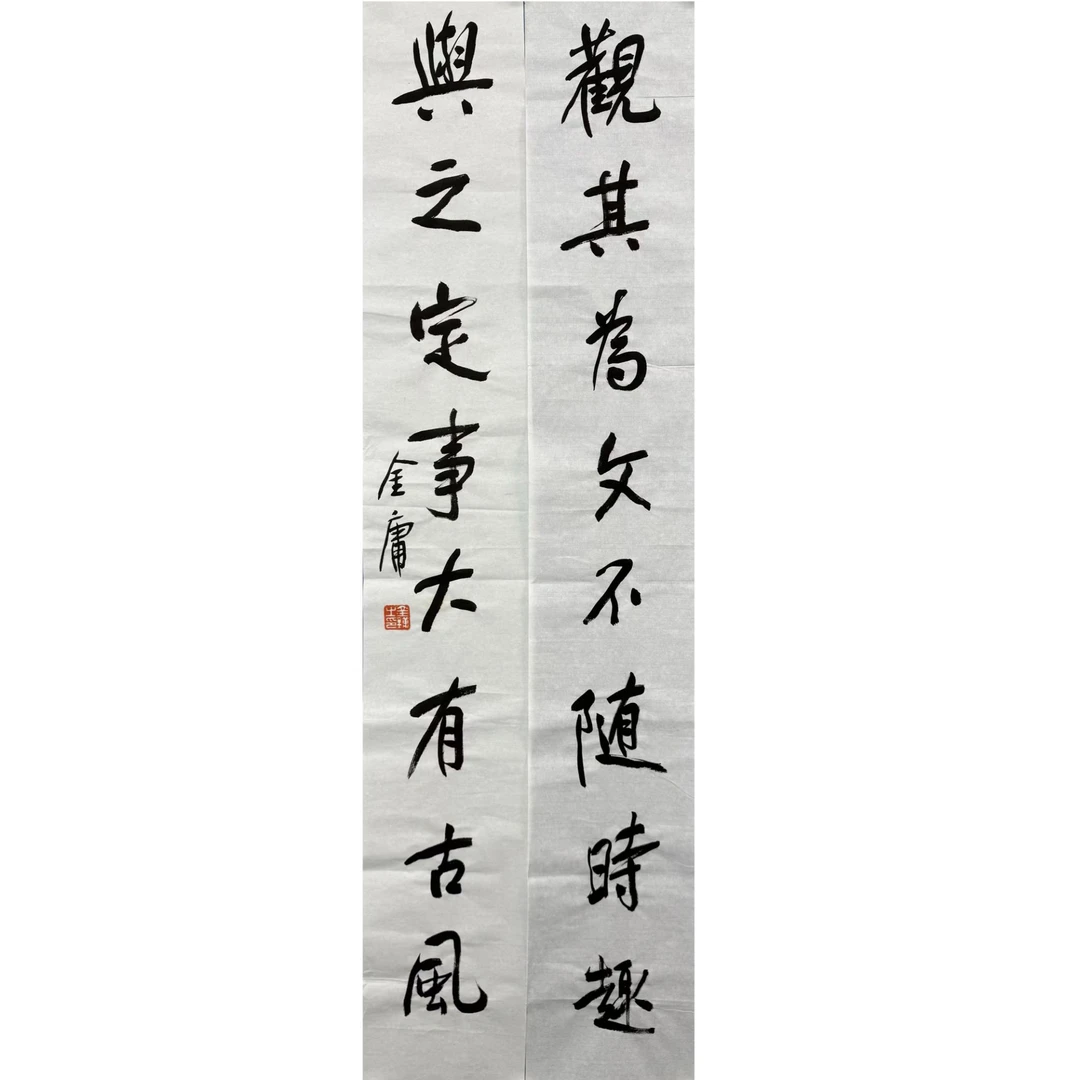 觀其為文不随時趣
與之定事大有古風
金庸